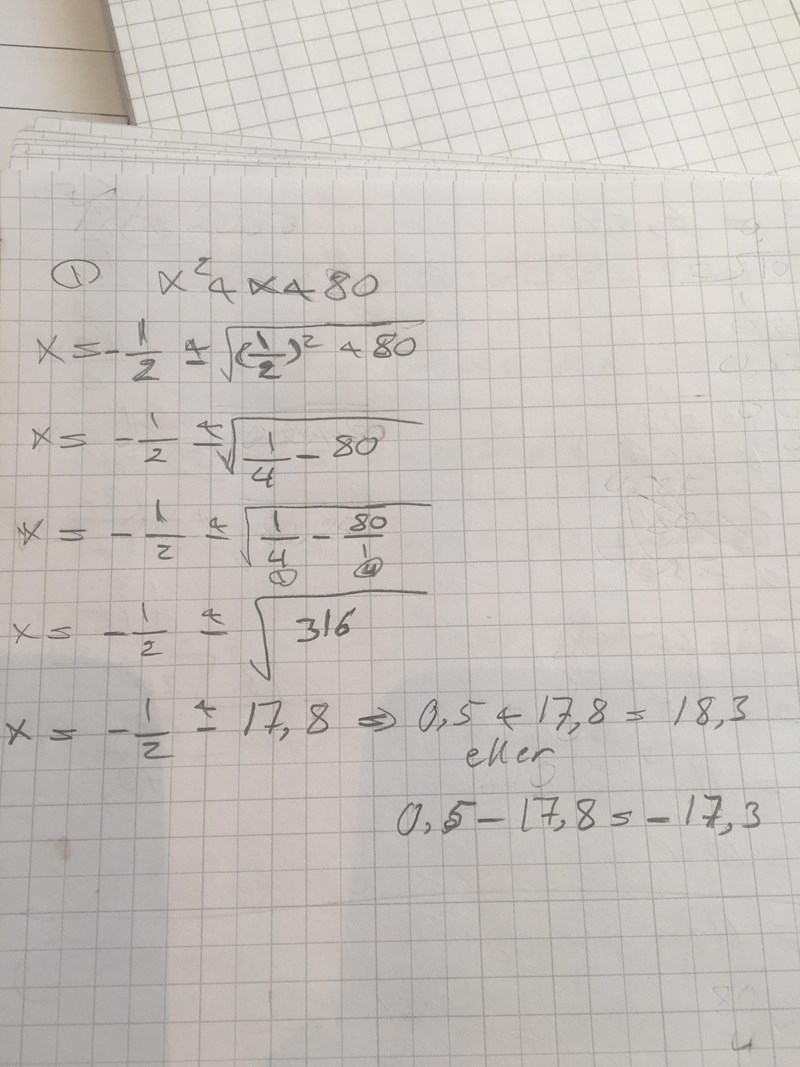 ① x² + x + 80
x = -1/2 ± √((1/2)² + 80)
x = -1/2 ± √(1/4 - 80)
x = -1/2 ± √(1/4 - 80/1) ① ④
x = -1/2 ± √316
x = -1/2 ± 17,8 ⇒ 0,5 + 17,8 = 18,3
eller
0,5 - 17,8 = -17,3